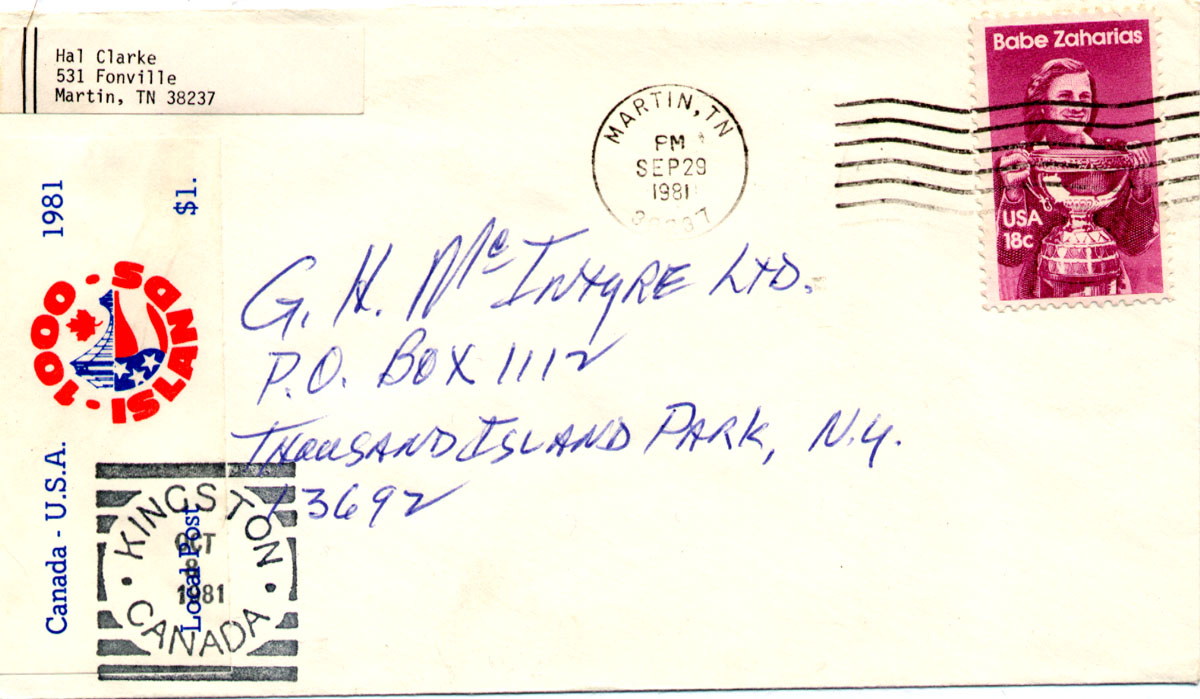 Hal Clarke
531 Fonville
Martin, TN 38237
MARTIN, TN
PM
SEP 29
1981
Babe Zaharias
USA
18c
1981
$1.
1000 · ISLANDS ·
Canada - U.S.A.
Local Post
G. H. McIntyre Ltd.
P.O. Box 1112
Thousand Island Park, N.Y.
13692
KINGSTON
OCT
1981
· CANADA ·